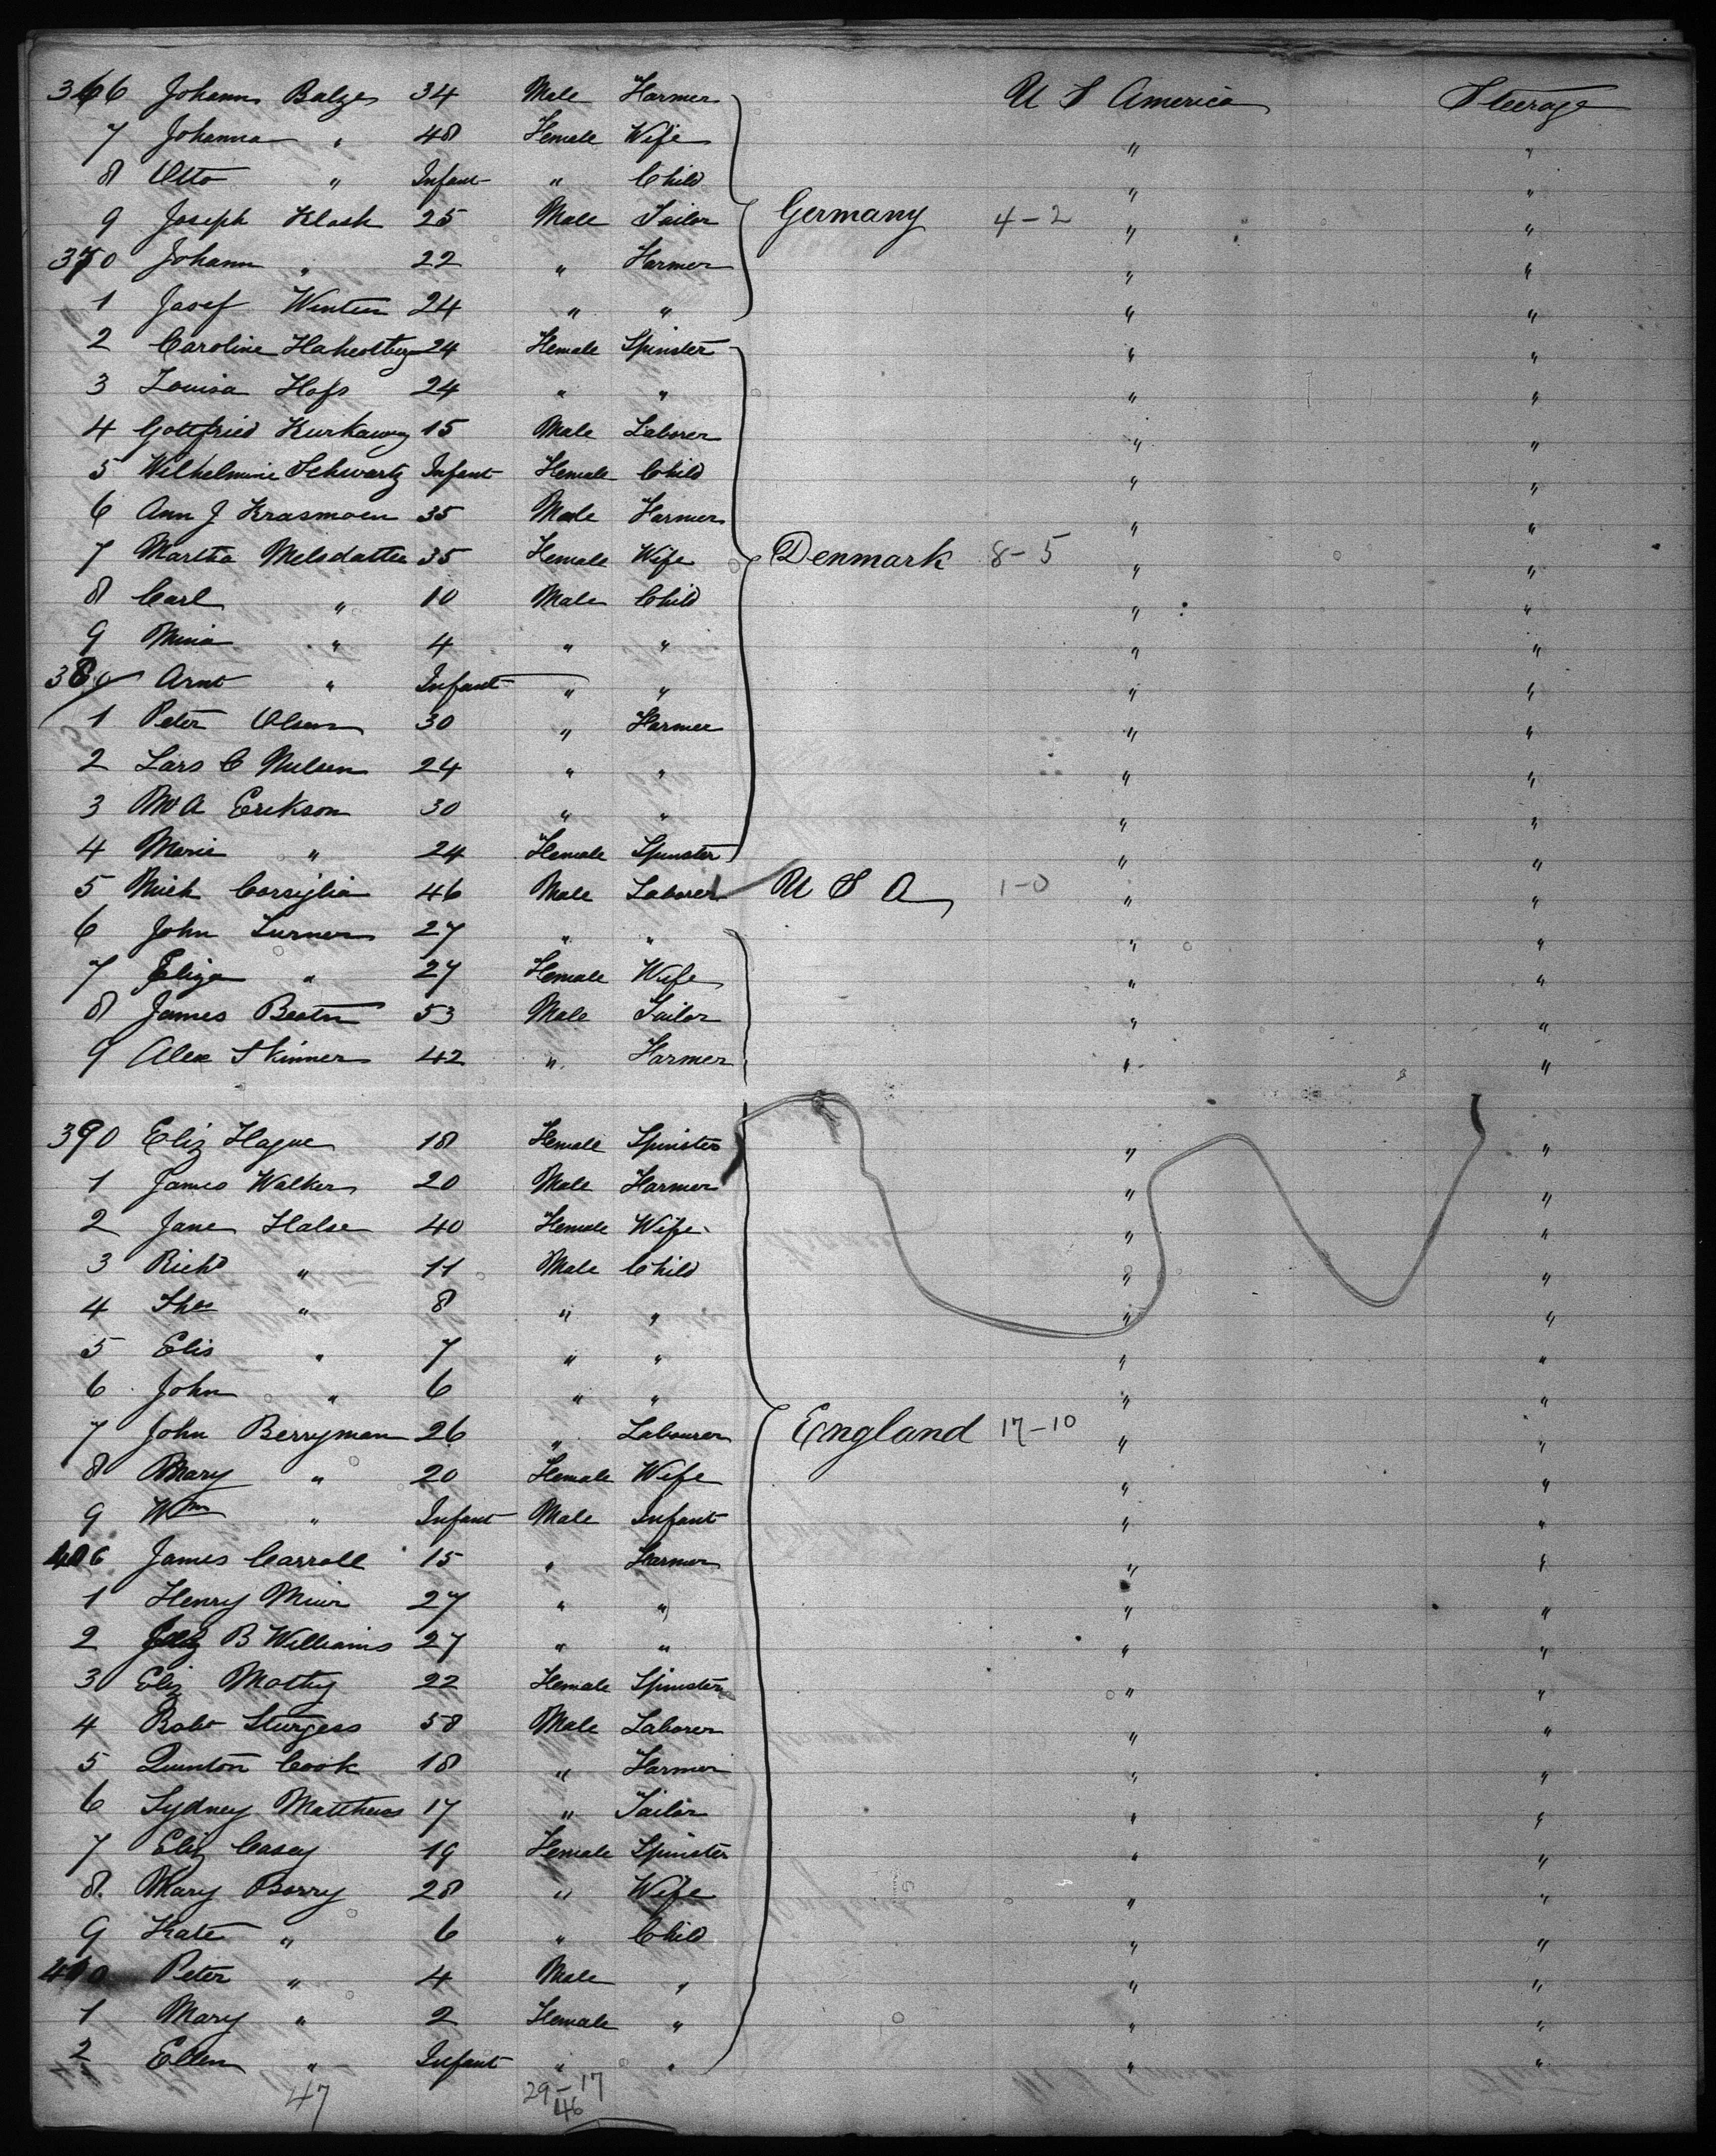 366 Johann Balzer 34 Male Farmer U S America Steerage
7 Johanna " 48 Female Wife " "
8 Otto " Infant " Child " "
9 Joseph Klask 25 Male Tailor Germany 4-2 " "
370 Johann " 22 " Farmer " "
1 Josef Winter 24 " " " "
2 Caroline 24 Female Spinster " "
3 Louisa Hofs 24 " " " "
4 Gottfried 15 Male Laborer " "
5 Wilhelmine Schwartz Infant Female Child " "
6 Ann J Krasmoen 35 Male Farmer " "
7 Martha Melsdatter 35 Female Wife Denmark 8-5 " "
8 Carl " 10 Male Child " "
9 Mina " 4 " " " "
380 Arnt " Infant " " " "
1 Peter Olsen 30 " Farmer " "
2 Lars C Nielsen 24 " " " "
3 M A Erikson 30 " " " "
4 Marie " 24 Female Spinster " "
5 Mich Corsiglia 46 Male Laborer U S A 1-0 " "
6 John Turner 27 " " " "
7 Eliza " 27 Female Wife " "
8 James Beaton 53 Male Tailor " "
9 Alex Skinner 42 " Farmer " "
390 Eliz Hague 18 Female Spinster " "
1 James Walker 20 Male Farmer " "
2 Jane Halse 40 Female Wife " "
3 Richd " 11 Male Child " "
4 Thos " 8 " " " "
5 Elis " 7 " " " "
6 John " 6 " " " "
7 John Berryman 26 " Labourer England 17-10 " "
8 Mary " 20 Female Wife " "
9 Wm " Infant Male Infant " "
400 James Carroll 15 " Farmer " "
1 Henry Muir 27 " " " "
2 B Williams 27 " " " "
3 Eliz Matthy 22 Female Spinster " "
4 Robt Sturgess 58 Male Laborer " "
5 Quinton Cook 18 " Farmer " "
6 Sydney Matthews 17 " Tailor " "
7 Eliz Casey 19 Female Spinster " "
8 Mary Barry 28 " Wife " "
9 Kate " 6 " Child " "
410 Peter " 4 Male " " "
1 Mary " 2 Female " " "
2 Ellen " Infant " " " "
47 29-17
46